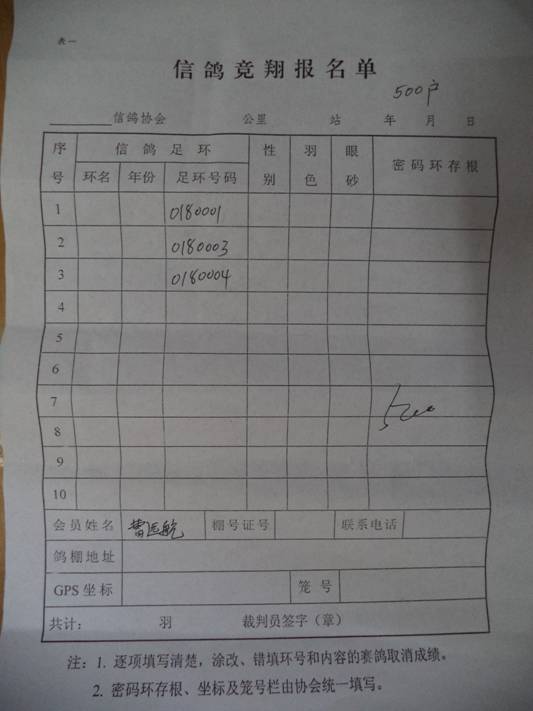 表一
信鸽竞翔报名单
500户
信鸽协会 公里 站 年 月 日
序号 信鸽足环 性别 羽色 眼砂 密码环存根
环名 年份 足环号码
1 0180001
2 0180003
3 0180004
4
5
6
7
8
9
10
会员姓名 曹远航 棚号证号 联系电话
鸽棚地址
GPS坐标 笼号
共计： 羽 裁判员签字（章）
注：1. 逐项填写清楚，涂改、错填环号和内容的赛鸽取消成绩。
2. 密码环存根、坐标及笼号栏由协会统一填写。